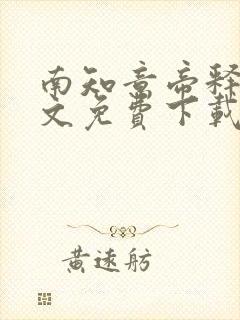 南知意帝释
文免费下载
黄远舫